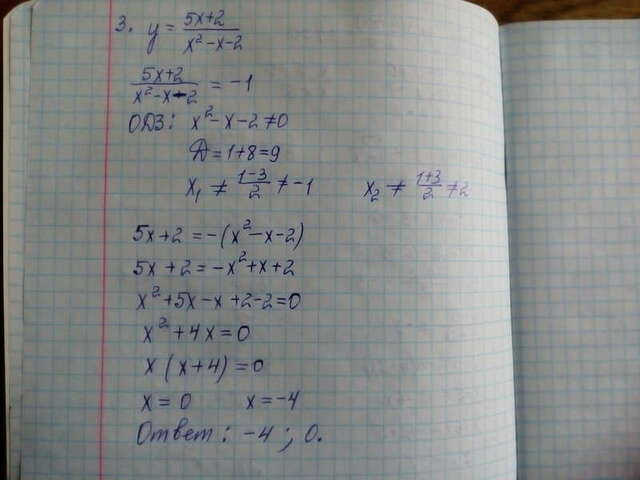 3. y = (5x+2)/(x²-x-2)
(5x+2)/(x²-x-2) = -1
ОДЗ: x²-x-2≠0
Д=1+8=9
x₁ ≠ (1-3)/2 ≠ -1 x₂ ≠ (1+3)/2 ≠ 2
5x+2=-(x²-x-2)
5x+2=-x²+x+2
x²+5x-x+2-2=0
x²+4x=0
x(x+4)=0
x=0 x=-4
Ответ: -4; 0.